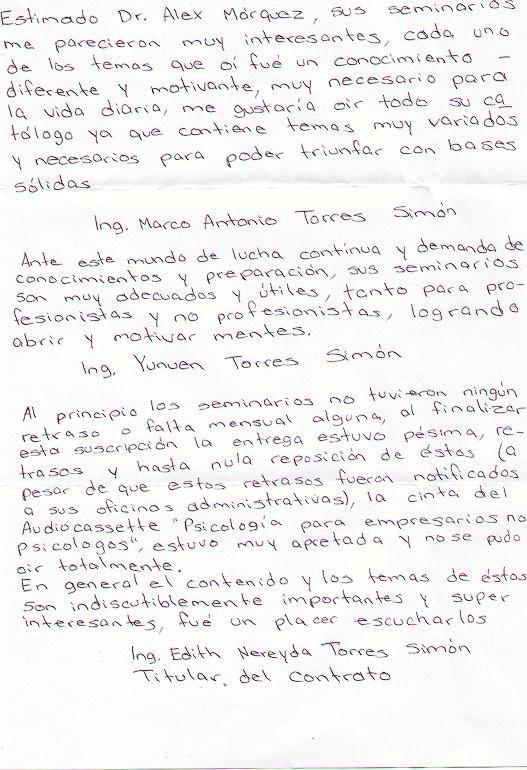 Estimado Dr. Alex Márquez, sus seminarios
me parecieron muy interesantes, cada uno
de los temas que oí fué un conocimiento -
diferente y motivante, muy necesario para
la vida diaria, me gustaría oir todo su ca
tálogo ya que contiene temas muy variados
y necesarios para poder triunfar con bases
sólidas
Ing. Marco Antonio Torres Simón
Ante este mundo de lucha contínua y demanda de
conocimientos y preparación, sus seminarios
son muy adecuados y útiles, tanto para pro-
fesionistas y no profesionistas, logrando
abrir y motivar mentes.
Ing. Yunuen Torres Simón
Al principio los seminarios no tuvieron ningún
retraso o falta mensual alguna, al finalizar
esta suscripción la entrega estuvo pésima, re-
trasos y hasta nula reposición de éstos (a
pesar de que estos retrasos fueron notificados
a sus oficinas administrativas), la cinta del
Audiocassette "Psicología para empresarios no
psicologos", estuvo muy apretada y no se pudo
oir totalmente.
En general el contenido y los temas de éstos
son indiscutiblemente importantes y super
interesantes, fué un placer escucharlos
Ing. Edith Nereyda Torres Simón
Titular del Contrato